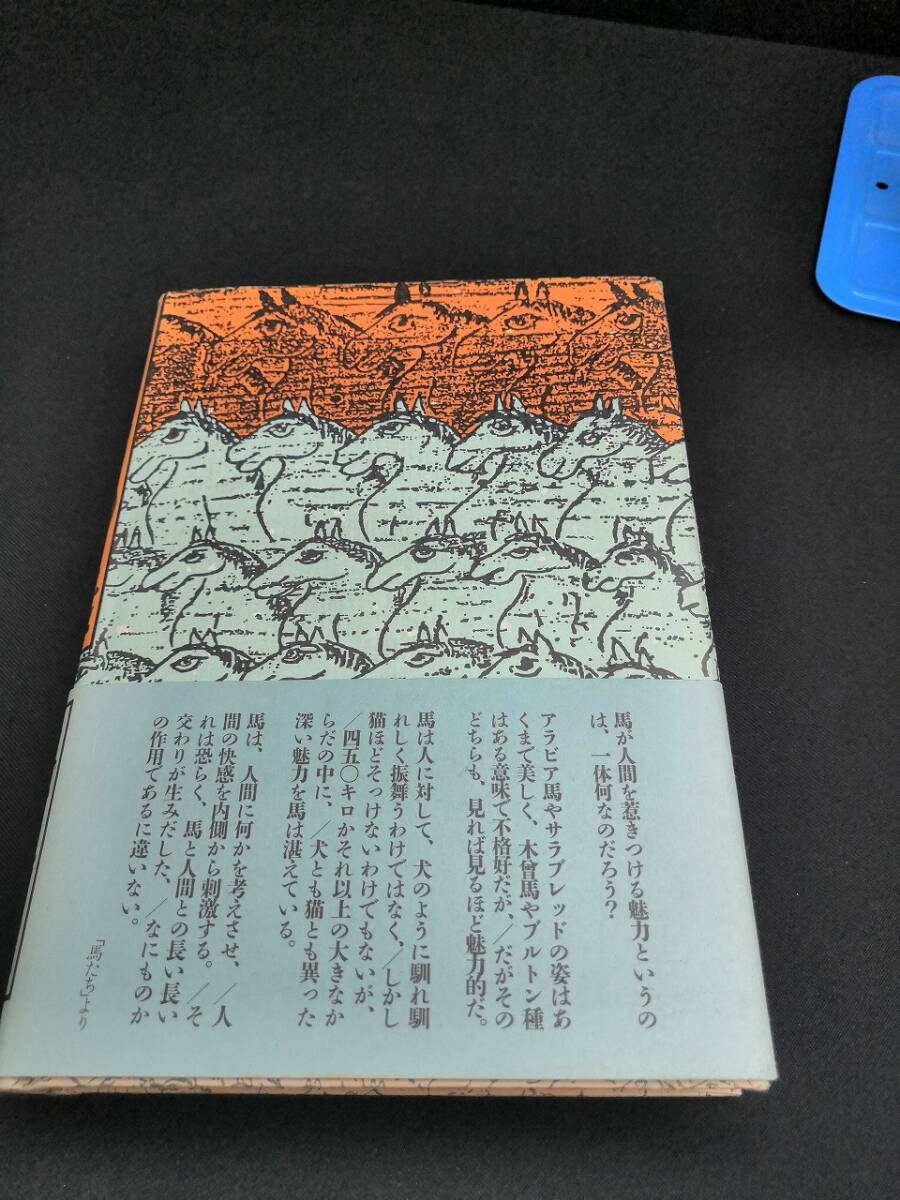 馬が人間を惹きつける魅力というの
は、一体何なのだろう？
アラビア馬やサラブレッドの姿はあ
くまで美しく、木曾馬やブルトン種
はある意味で不格好だが、／だがその
どちらも、見れば見るほど魅力的だ。
馬は人に対して、犬のように馴れ馴
れしく振舞うわけではなく、／しかし
猫ほどそっけないわけでもないが、
／四五〇キロかそれ以上の大きなか
らだの中に、／犬とも猫とも異った
深い魅力を馬は湛えている。
馬は、人間に何かを考えさせ、／人
間の快感を内側から刺激する。／そ
れは恐らく、馬と人間との長い長い
交わりが生みだした、／なにものか
の作用であるに違いない。
「馬たち」より